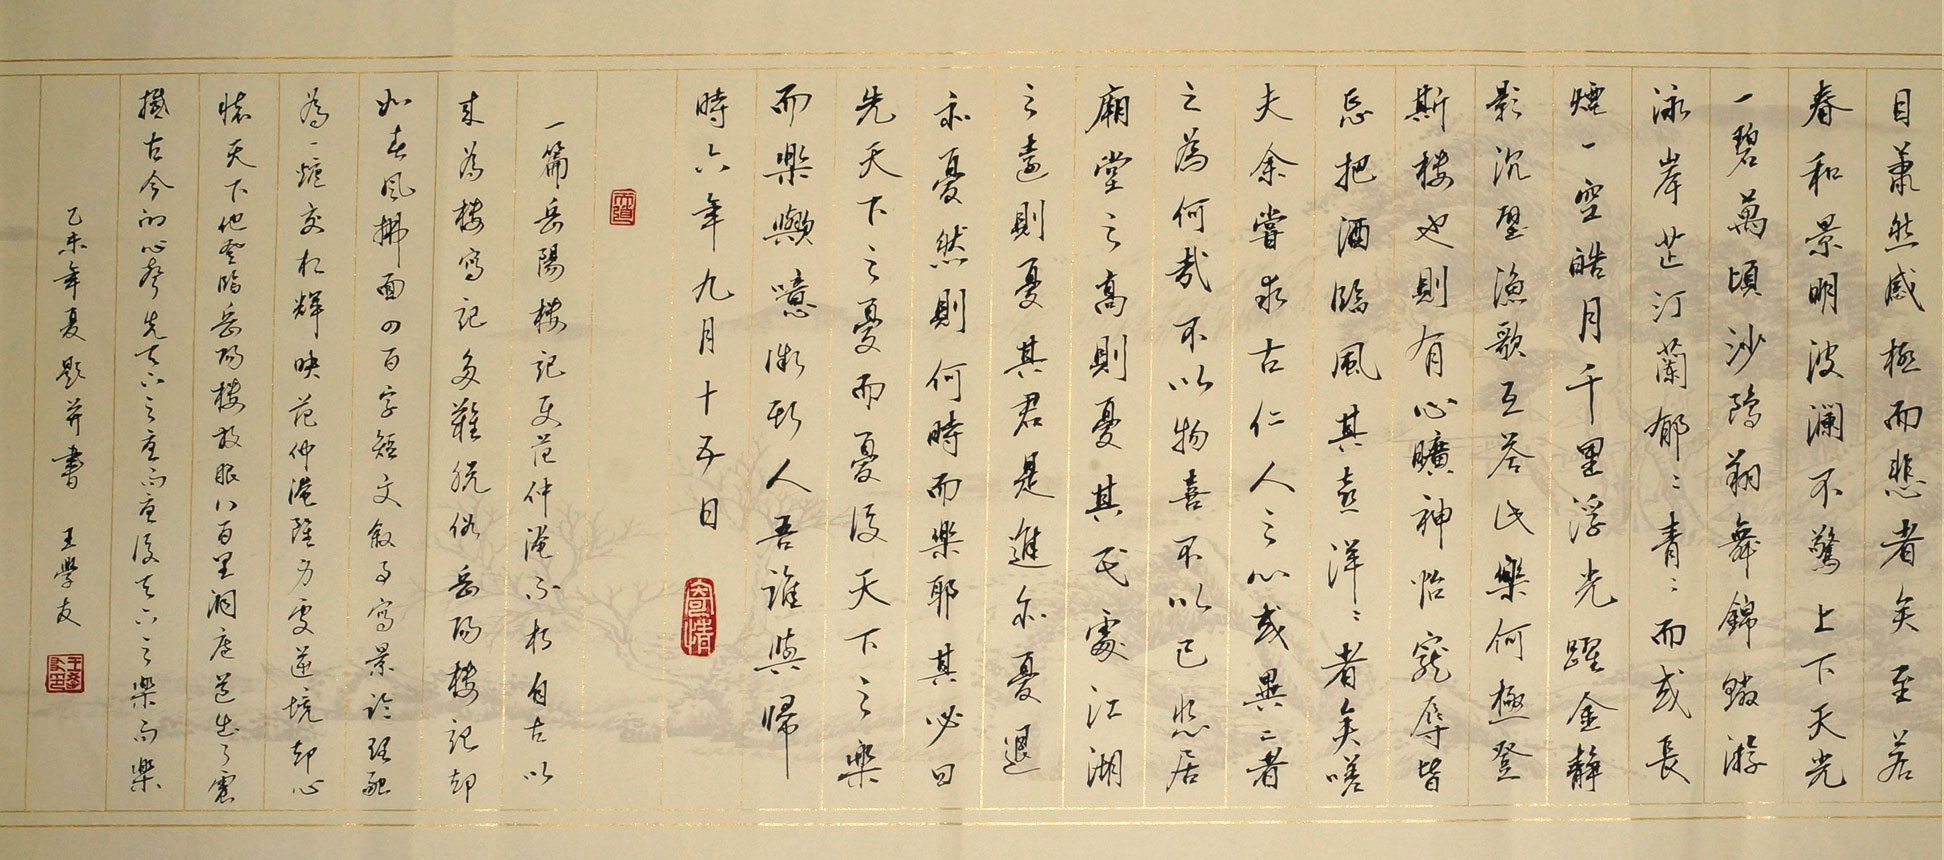 目蕭然感極而悲者矣至若
春和景明波澜不驚上下天光
一碧萬頃沙鷗翔舞錦鱗游
泳岸芷汀蘭郁〻青〻而或長
煙一空皓月千里浮光躍金静
影沉壁漁歌互答此樂何極登
斯楼也則有心曠神怡寵辱皆
忘把酒臨風其喜洋〻者矣嗟
夫余嘗求古仁人之心或異二者
之為何哉不以物喜不以己悲居
廟堂之高則憂其民處江湖
之遠則憂其君是進亦憂退
亦憂然則何時而樂耶其必曰
先天下之憂而憂後天下之樂
而樂歟噫微斯人吾誰與歸
時六年九月十五日
寄情
一篇岳陽楼記使范仲淹不朽自古以
来為楼寫記多難脱俗岳陽楼記却
如春風拂面四百字短文叙事寫景論理融
為一爐交相輝映范仲淹雖身處逆境却心
懷天下他登臨岳陽楼放眼八百里洞庭道出了震
撼古今的心聲先天下之憂而憂後天下之樂而樂
乙未年夏題并書 王學友